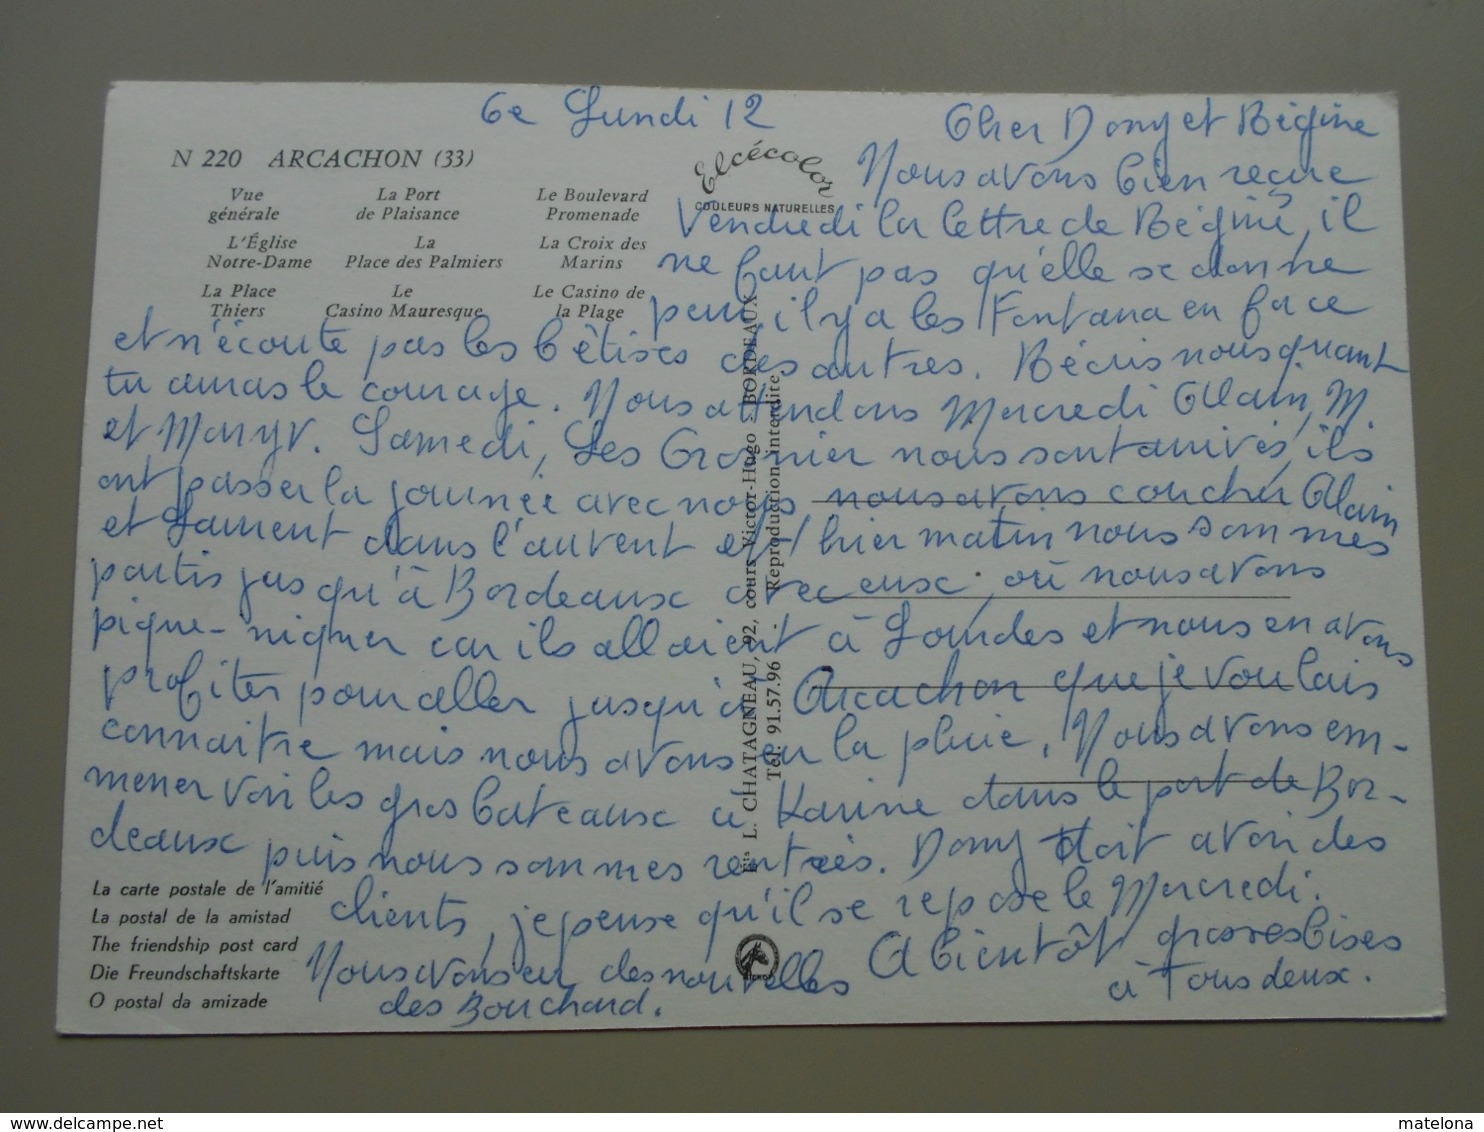 Ce Lundi 12
Cher Dany et Régine
N 220 ARCACHON (33)
Vue générale
La Port de Plaisance
Le Boulevard Promenade
L'Église Notre-Dame
La Place des Palmiers
La Croix des Marins
La Place Thiers
Le Casino Mauresque
Le Casino de la Plage
Elcécolor
COULEURS NATURELLES
Nous avons bien reçue
Vendredi la lettre de Régine, il
ne faut pas qu'elle se donne
peur, il y a les Fontana en face
et n'écoute pas les bêtises des autres. Récris nous quant
tu auras le courage. Nous attendons Mercredi Alain, M
et Mary. Samedi, Les Grosnier nous sont arrivés, ils
ont passer la journée avec nous, nous avons coucher Alain
et Laurent dans l'auvent et hier matin nous sommes
partis jusqu'à Bordeaux avec eux, où nous avons
pique-niquer car ils allaient à Lourdes et nous en avons
profiter pour aller jusqu'à Arcachon que je voulais
connaitre mais nous avons eu la pluie. Nous avons em-
mener voir les gros bateaux à Karine dans le port de Bor-
deaux puis nous sommes rentrés. Dany doit avoir des
clients, je pense qu'il se repose le Mercredi.
Nous avons eu des nouvelles
des Bouchard.
A bientôt grosses bises
à Tous deux.
La carte postale de l'amitié
La postal de la amistad
The friendship post card
Die Freundschaftskarte
O postal da amizade
Ets L. CHATAGNEAU, 92, cours Victor-Hugo - BORDEAUX
Tél. 91.57.96 - Reproduction interdite
www.delcampe.net
matelona